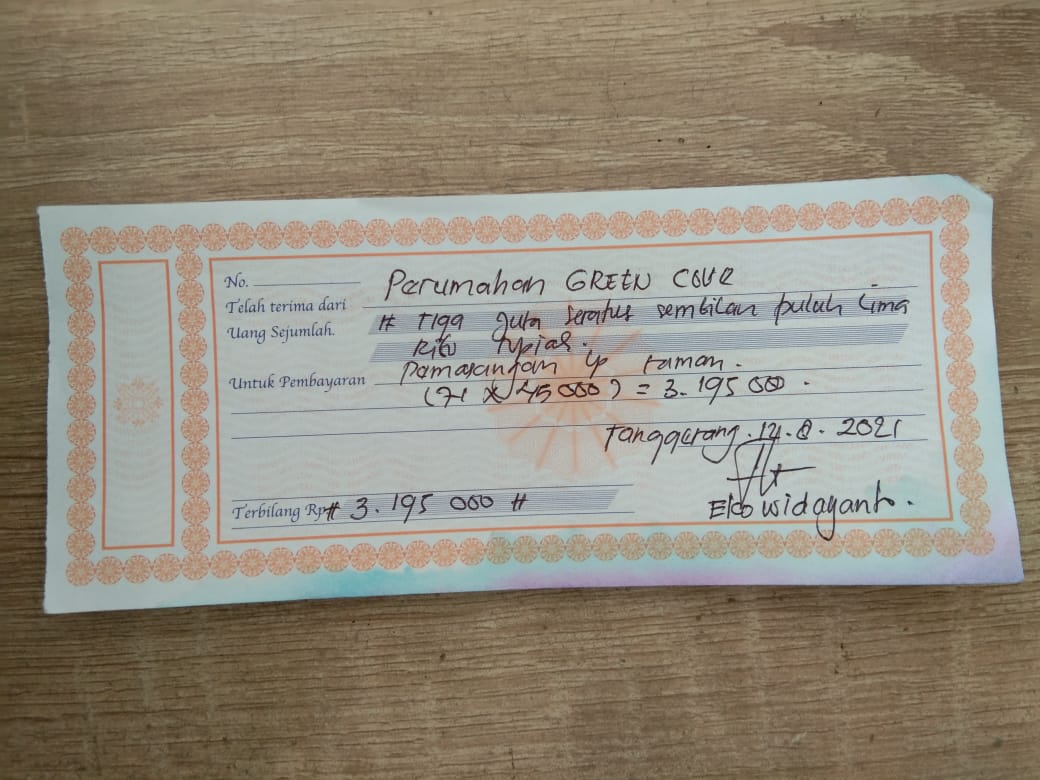 No.
Telah terima dari Perumahan GREEN COVE
Uang Sejumlah. # Tiga Juta Seratus sembilan puluh Lima
Ribu rupiah.
Untuk Pembayaran Pemasangan lp taman.
(71 x 45 000) = 3.195 000.
Tanggerang. 14. 8. 2021
Terbilang Rp # 3.195 000 #
Eko widayanto.